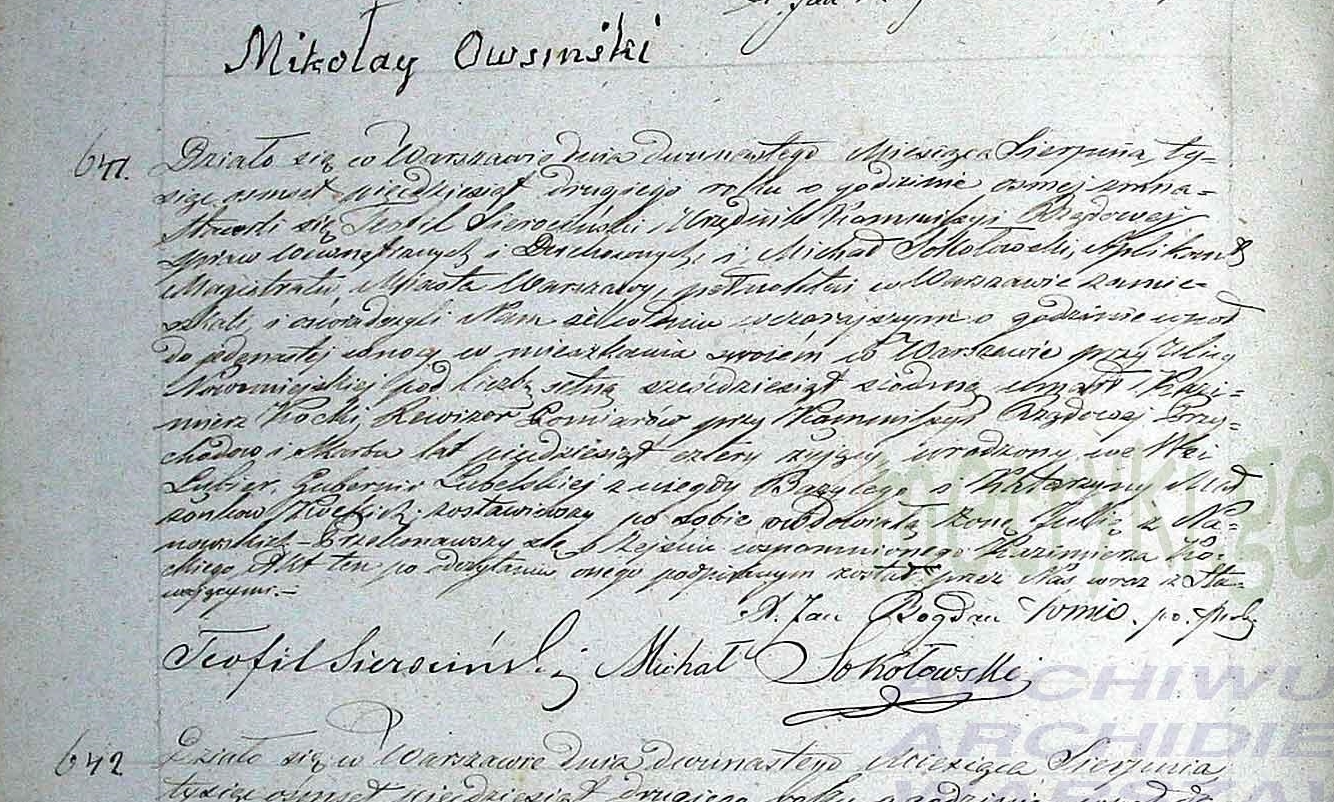 Mikołay Owsinski
641. Działo się w Warszawie dnia dwunastego Miesiąca Sierpnia, ty-
siąc osmset pięcdziesiąt drugiego roku o godzinie osmej zrana
Stawili się Teofil Sierociński, Urzędnik Kommissyi Rządowej
spraw wewnętrznych i Duchownych, i Michał Sokołowski, Aplikant
Magistratu, Miasta Warszawy, pełnoletni w Warszawie zamie-
szkali, i oswiadczyli Nam ze w dniu wczorajszym o godzinie w pół
do jedenastej w nocy w mieszkaniu swoiem w Warszawie przy Ulicy
Nowomiejskiej pod liczbą setną szesćdziesiąt siodmą, umarł Kazi-
mierz Kocki, Rewizor Pomiarów przy Kommissyi Rządowej Przy-
chodow i Skarbu lat pięcdziesiąt cztery mający, urodzony we Wsi
Gubernii Lubelskiej z niegdy Bazylego i Katarzyny Mał
żonkow Kockich; zostawiwszy po sobie owdowiałą żonę Julię z No-
nowskich – Przekonawszy się o Zejściu wspomnionego Kazimierza Ko-
ckiego, Akt ten po odczytaniu onego podpisanym został przez Nas wraz z Sta-
wającymi. –
X. Jan Bogdan
Teofil Sierociński Michał Sokołowski
642 Działo się w Warszawie dnia dwunastego Miesiąca Sierpnia,
tysiąc osmset pięcdziesiąt drugiego roku o godzinie
metryki.ge
ARCHIWU
ARCHIDIE
WARSZAW